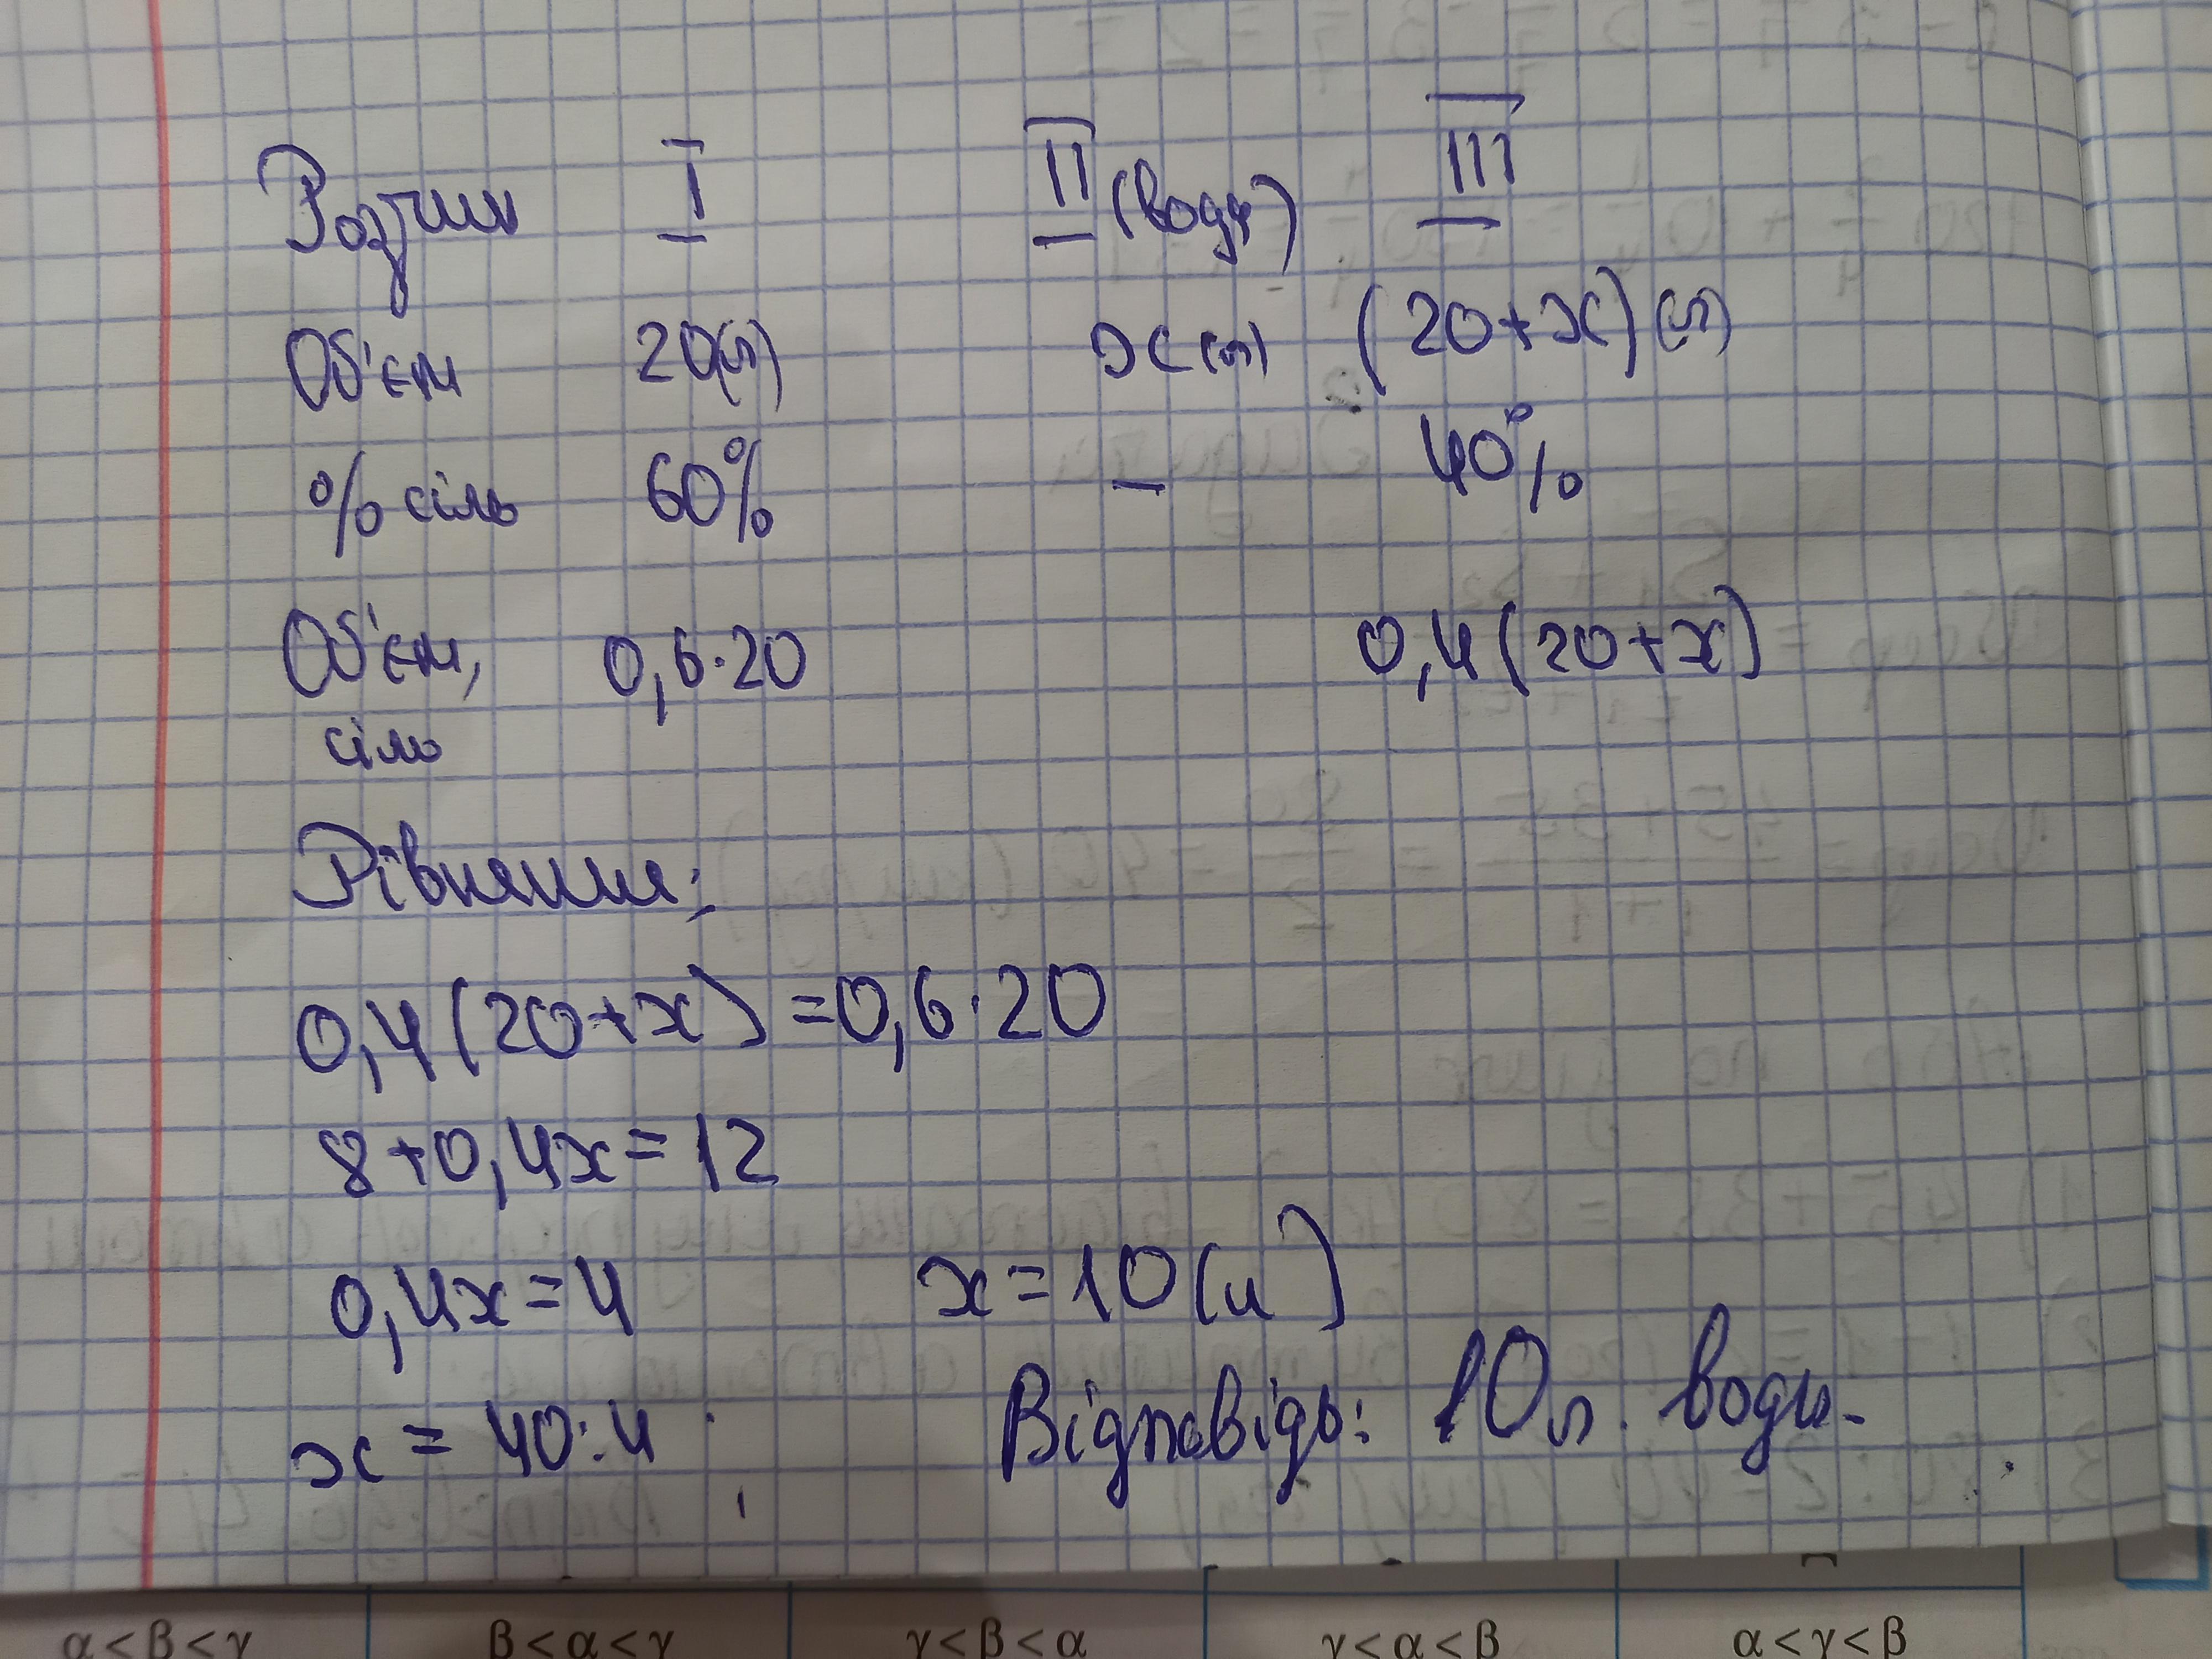 Розчин I II (вода) III
Об'єм 20(л) x(л) (20+x)(л)
% сіль 60% – 40%
Об'єм, 0,6·20 0,4(20+x)
сіль
Рівняння:
0,4(20+x)=0,6·20
8+0,4x=12
0,4x=4 x=10(л)
x=40:4
Відповідь: 10л. води.
α<β<γ β<α<γ γ<β<α γ<α<β α<γ<β